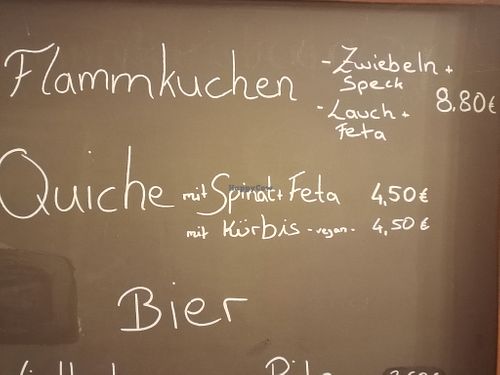 Flammkuchen
- Zwiebeln +
Speck
- Lauch +
Feta
8.80€
Quiche mit Spinat + Feta 4,50€
mit Kürbis - vegan - 4,50€
Bier